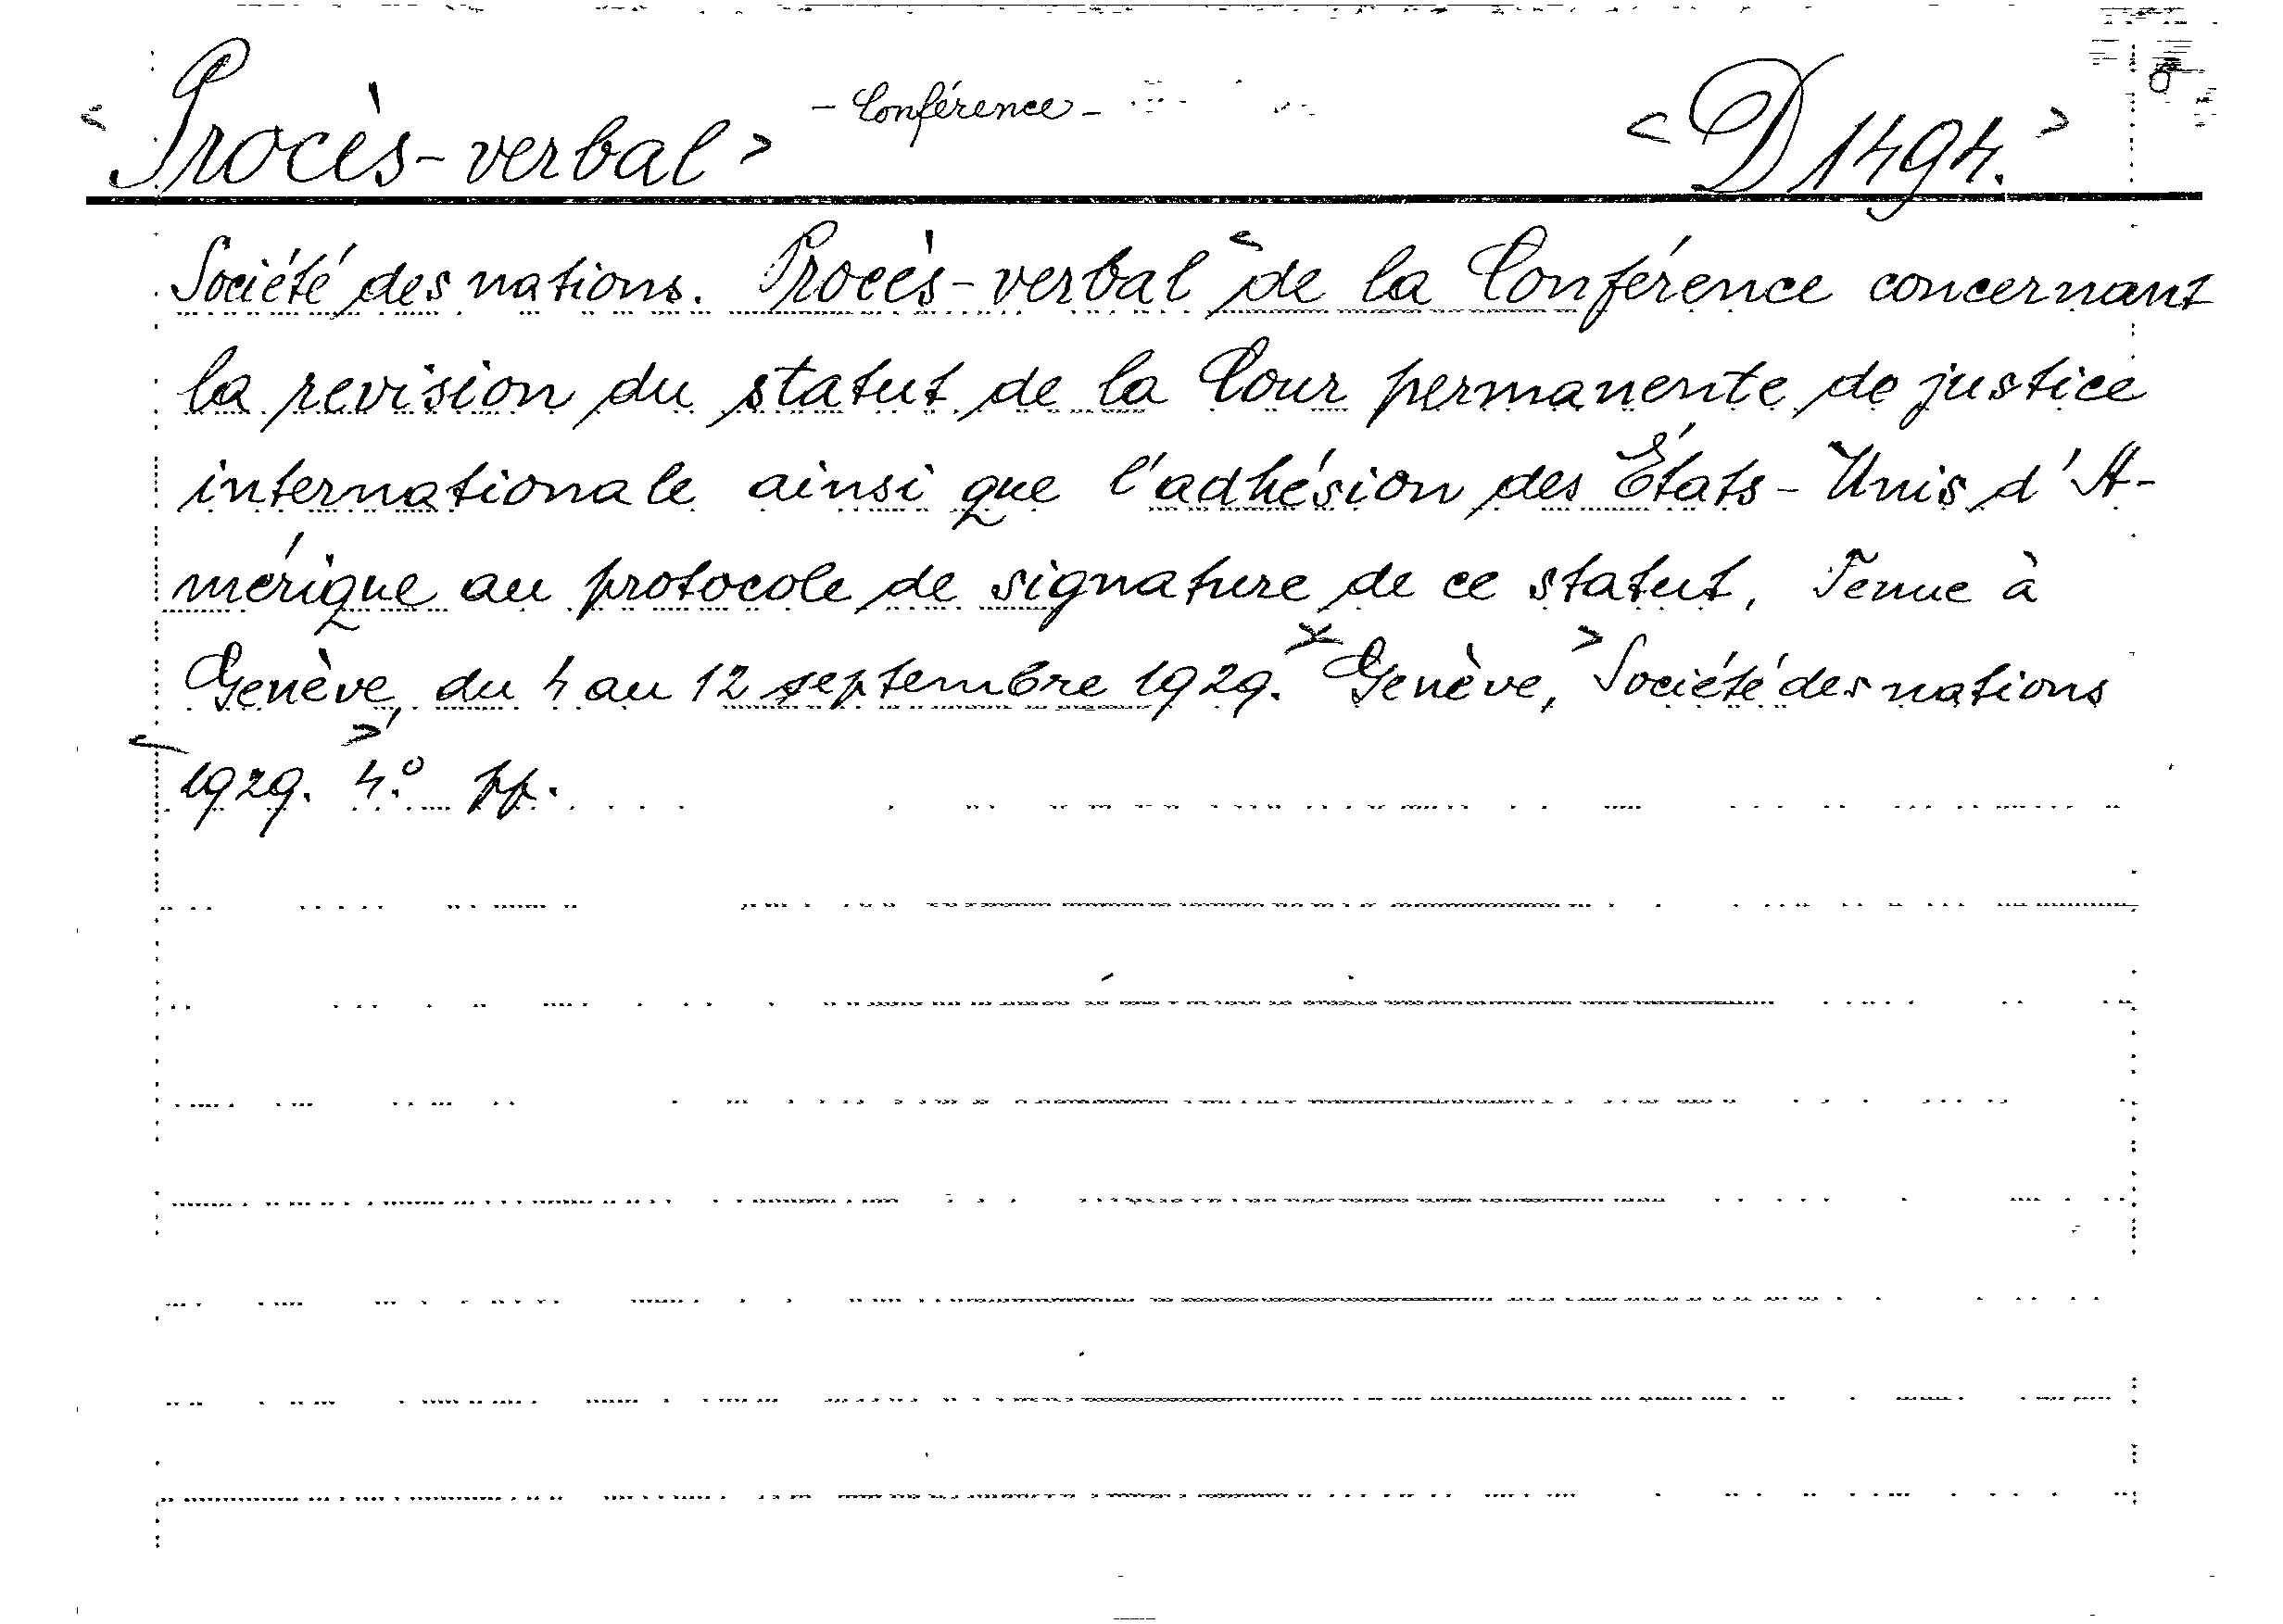 Procès-verbal - Conférence - D 1494.
Société des nations. Procès-verbal de la Conférence concernant
la revision du statut de la Cour permanente de justice
internationale ainsi que l'adhésion des États-Unis d'A-
mérique au protocole de signature de ce statut, Tenue à
Genève, du 4 au 12 septembre 1929. Genève, Société des nations
1929. 4.º pp.